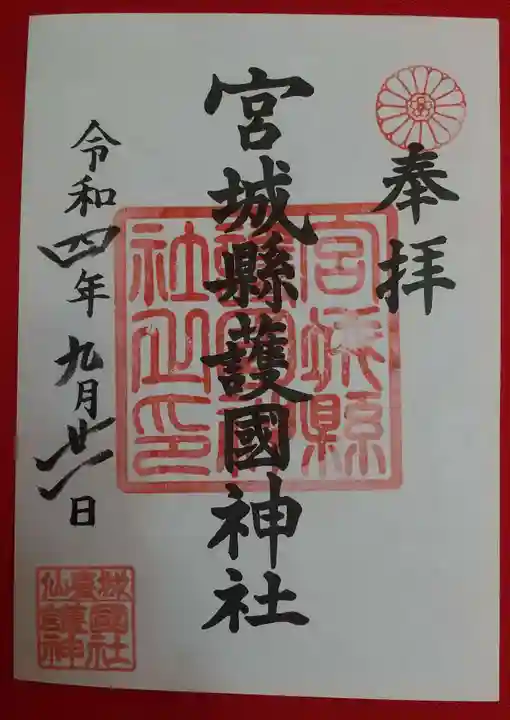 奉拝
宮城縣護國神社
宮城縣護國神社之印
令和四年九月廿一日